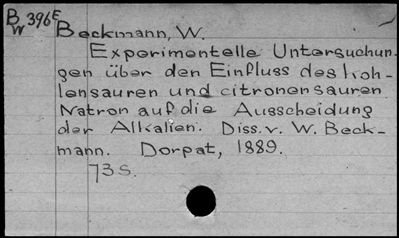 B 396E
W
Beckmann, W.
Experimentelle Untersuchun-
gen über den Einfluss des koh-
lensauren und citronensauren
Natron auf die Ausscheidung
der Alkalien. Diss. v. W. Beck-
mann. Dorpat, 1889.
73 S.